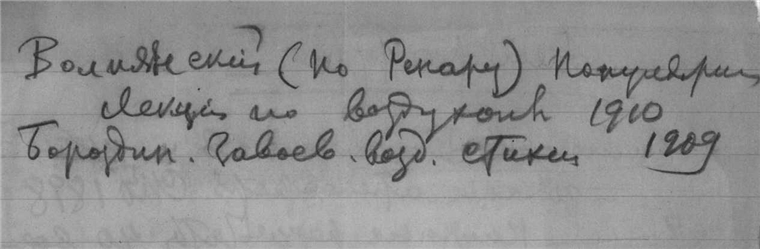 Волпянский (по Ренару) Популярн
лекции по воздухопл 1910
Бородин. Завоев. возд. стихии 1909